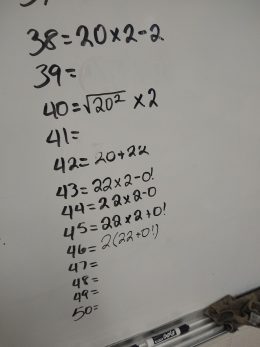 38=20×2-2
39=
40=√20² ×2
41=
42=20+22
43=22×2-0!
44=22×2-0
45=22×2+0!
46=2(22+0!)
47=
48=
49=
50=